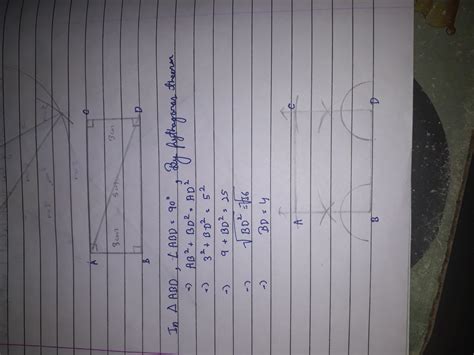 A
C
3cm
5cm
3cm
B
D
In △ABD, ∠ABD = 90°, By pythagoras theorem
→) AB² + BD² = AD²
→) 3² + BD² = 5²
→) 9 + BD² = 25
→) √BD² = √16
→) BD = 4
A
C
B
D